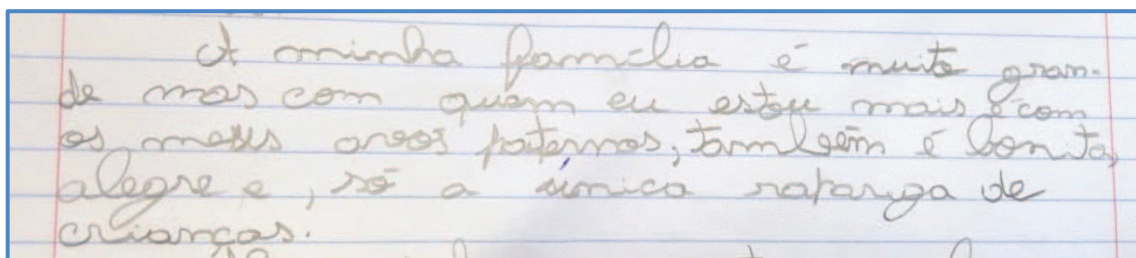 A minha família é muito gran-
de mas com quem eu estou mais é com
os meus avós paternos, também é bonita,
alegre e, só a única rapariga de
crianças.